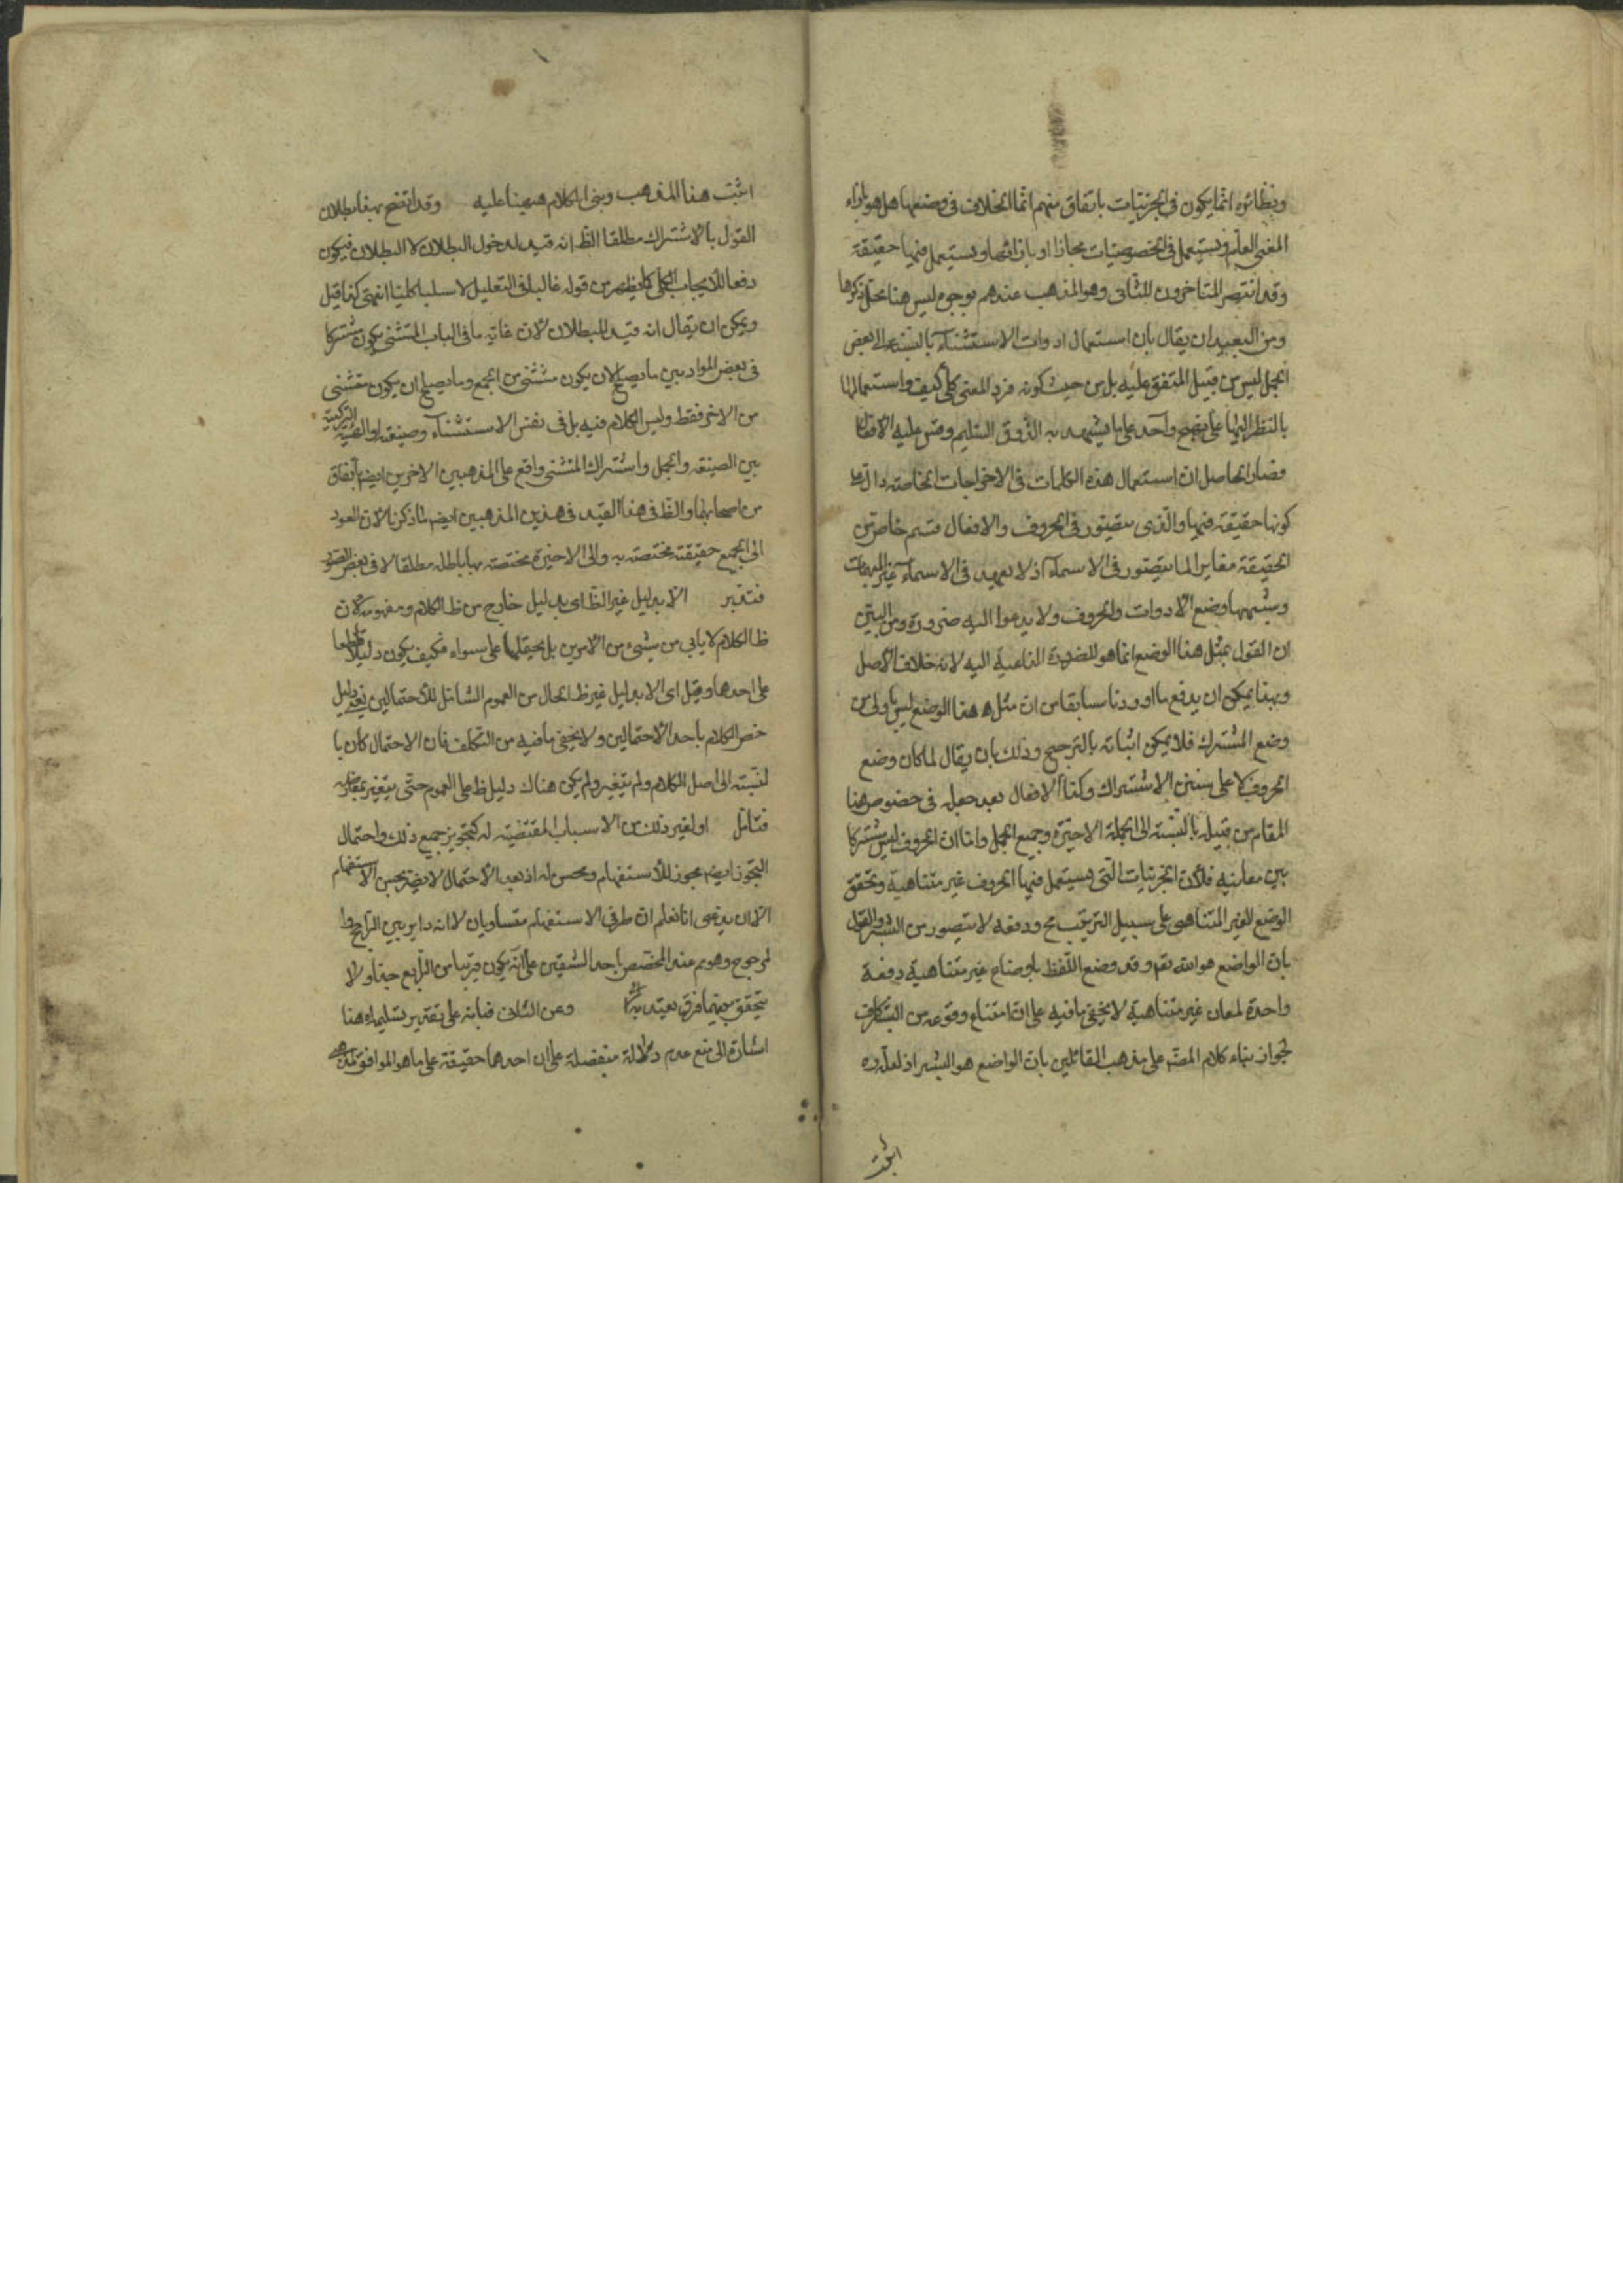 ونظائره انما يكون في الجزئيات باتفاق منهم انما الخلاف في وضعها هل هو بازاء
المعنى العام ويستعمل في الخصوصيات مجازا او بازائها ويستعمل فيها حقيقة
وقد انتصر المتاخرون للثاني وهو المذهب عندهم بوجوه ليس هنا محل ذكرها
ومن البعيد ان يقال بان استعمال ادوات الاستثناء بالنسبة الى بعض
الجمل ليس من قبيل المتفق عليه بل من حيث كونه فرد المعنى كلي كيف واستعمالها
بالنظر اليها على نهج واحد على ما يشهد به الذوق السليم وقس عليه الافعال
فصار الحاصل ان استعمال هذه الكلمات في الاخراجات الخاصة دال على
كونها حقيقة فيها والذي يتصور في الحروف والافعال قسم خاص من
الحقيقة مغاير لما يتصور في الاسماء اذ لا يعهد في الاسماء غير المبهمات
وشبهها وضع الادوات والحروف ولا يدعوا اليه ضرورة ومن البين
ان القول بمثل هذا الوضع انما هو للضرورة الداعية اليه لانه خلاف الاصل
وبهذا يمكن ان يدفع ما اوردنا سابقا من ان مثل هذا الوضع ليس باولى من
وضع المشترك فلا يمكن اثباته بالترجيح وذلك بان يقال لما كان وضع
الحروف لا على سنن الاشتراك وكذا الافعال بعد جعله في خصوص هنا
المقام من قبيله بالنسبة الى الجملة الاخيرة وجميع الجمل واما ان الحروف ليس مشتركا
بين معانيه فلان الجزئيات التي يستعمل فيها الحروف غير متناهية وتحقق
الوضع للغير المتناهي على سبيل الترتيب مح ودفعة لا يتصور من البشر والقول
بان الواضع هو الله تعم وقد وضع اللفظ باوضاع غير متناهية دفعة
واحدة لمعان غير متناهية لا يخفى ما فيه على ان امتناع وقوعه من البشر كاف
لجواز بناء كلام المصنم على مذهب القائلين بان الواضع هو البشر اذ لعله ره
اثبت هذا المذهب وبنى الكلام هيهنا عليه وقد اتضح بهذا بطلان
القول بالاشتراك مطلقا الظ انه قيد لدخول البطلان لا البطلان فيكون
دفعا للايجاب الكلي كما يظهر من قوله غالبا في التعليل لا سلبا كليا انتهى كذا قيل
ويمكن ان يقال انه قيد للبطلان لان غاية ما في الباب المستثنى يكون مشتركا
في بعض المواد بين ما يصلح لان يكون مستثنى من الجميع وما يصلح ان يكون مستثنى
من الاخر فقط وليس الكلام فيه بل في نفس الاستثناء وصيغته او الهيئة التركيبية
بين الصيغة والجمل واشتراك المستثنى واقع على المذهبين الاخرين ايضم باتفاق
من اصحابهما والظ في هذا القيد في هذين المذهبين ايضم ما ذكرنا لان العود
الى الجميع حقيقة مختصة به والى الاخيرة مختصة بها باطله مطلقا لا في بعض الصور
فتدبر الا بدليل غير الظ اى بدليل خارج من ظ الكلام ومفهومه لان
ظ الكلام لا يابى من شيئ من الامرين بل يحتملها على سواء فكيف يكون دليلا قاطعا
على احدها وقيل اى الا بدليل غير ظ الحال من العموم الشامل للاحتمالين دليل
خص الكلام باحد الاحتمالين ولا يخفى ما فيه من التكلف فان الاحتمال كان با
لنسبته الى اصل الكلام ولم يتغير ولم يكن هناك دليل ظ على العموم حتى يتغير
فتامل او لغير ذلك من الاسباب المقتضية له كتجويز جميع ذلك واحتمال
التجوز ايضم مجوز للاستفهام ومحسن له اذ بعد الاحتمال لا يضر بحسن الاستفهام
الا ان يدعى انا نعلم ان طرفي الاستفهام متساويان لا انه داير بين الراجح وا
لمرجوح وهو مم عند المخصص باحد الشقين على انه يكون قريبا من الرابع جدا ولا
يتحقق بينهما فرق يعتد به وعن الثاني فبانه على تقدير تسليمه هنا
اشارة الى منع عدم دلالة منفصلة على ان احدهما حقيقة على ما هو الموافق لمذهبه